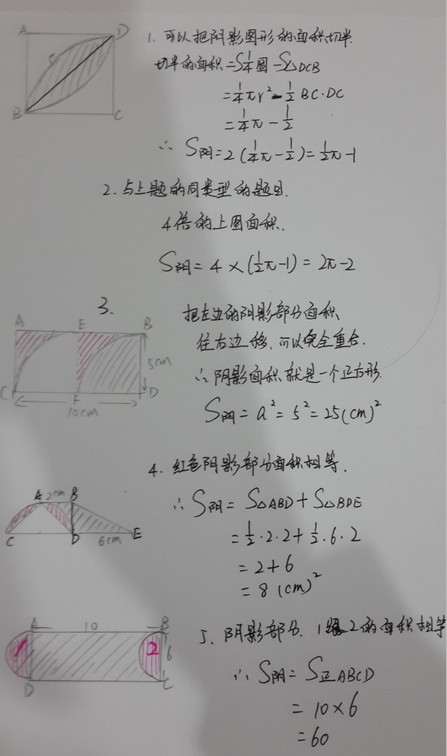 A
D
B
C
1. 可以把阴影图形的面积切半
切半的面积=S¼圆-S△DCB
=¼πr²-½BC·DC
=¼π-½
∴ S阴=2(¼π-½)=½π-1
2. 与上题的同类型的题目.
4倍的上图面积.
S阴=4×(½π-1)=2π-2
3.
A
E
B
5cm
C
F
D
10cm
把左边的阴影部分面积
往右边移,可以完全重合.
∴阴影面积就是一个正方形.
S阴=a²=5²=25(cm)²
4. 红色阴影部分面积相等.
A
2cm
B
C
D
6cm
E
∴S阴=S△ABD+S△BDE
=½·2·2+½·6·2
=2+6
=8(cm)²
A
10
B
1
2
6
D
C
5. 阴影部分 1 2的面积相等
∴S阴=S正ABCD
=10×6
=60